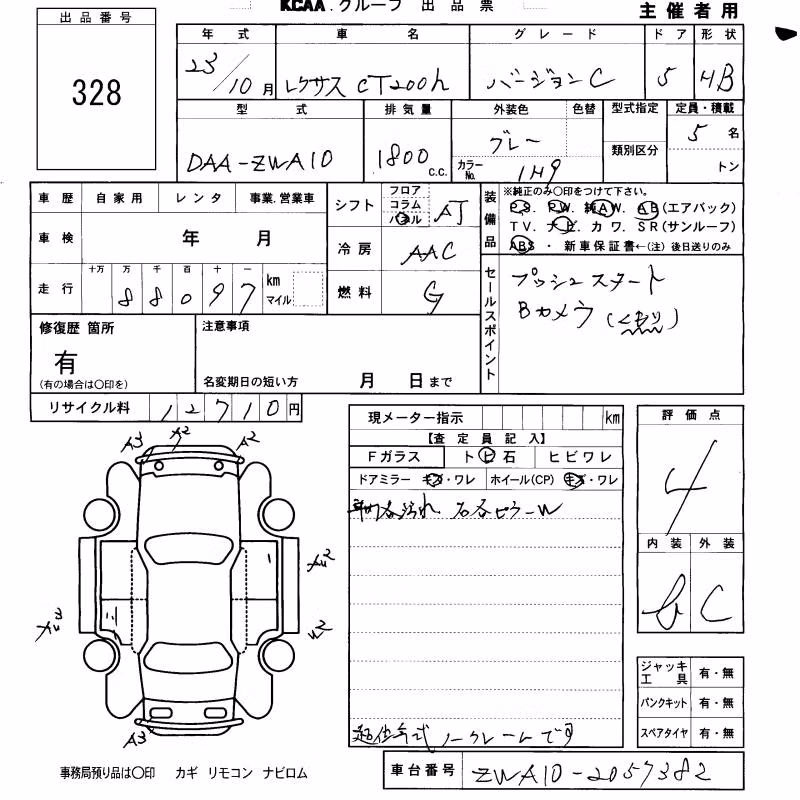 KCAA.グループ 出品票
主催者用
出品番号
328
年式 車名 グレード ドア 形状
23/10月 レクサス CT200h バージョンC 5 HB
型式 排気量 外装色 色替 型式指定 定員・積載
DAA-ZWA10 1800 c.c. グレー 類別区分 5名
カラーNo. 1H9 トン
車歴 自家用 レンタ 事業.営業車
シフト フロア コラム パネル AT
車検 年 月
冷房 AAC
走行 十万 万 千 百 十 一
88097 km マイル
燃料 G
装備品
※純正のみ○印をつけて下さい。
P.S. P.W. 純A.W. A.B(エアバック)
T.V. ナビ. カワ. S.R(サンルーフ)
ABS・新車保証書←(注)後日送りのみ
セールスポイント
プッシュスタート
Bカメラ(くもり)
修復歴 箇所
有
(有の場合は○印を)
注意事項
名変期日の短い方 月 日まで
リサイクル料 12710円
現メーター指示 km
【査定員記入】
Fガラス トビ石 ヒビワレ
ドアミラー キズ・ワレ ホイール(CP) キズ・ワレ
A3 A2 A2
A3
評価点
4
内装 外装
C
ジャッキ工具 有・無
パンクキット 有・無
スペアタイヤ 有・無
ノークレームです
事務局預り品は○印 カギ リモコン ナビロム
車台番号 ZWA10-2057382